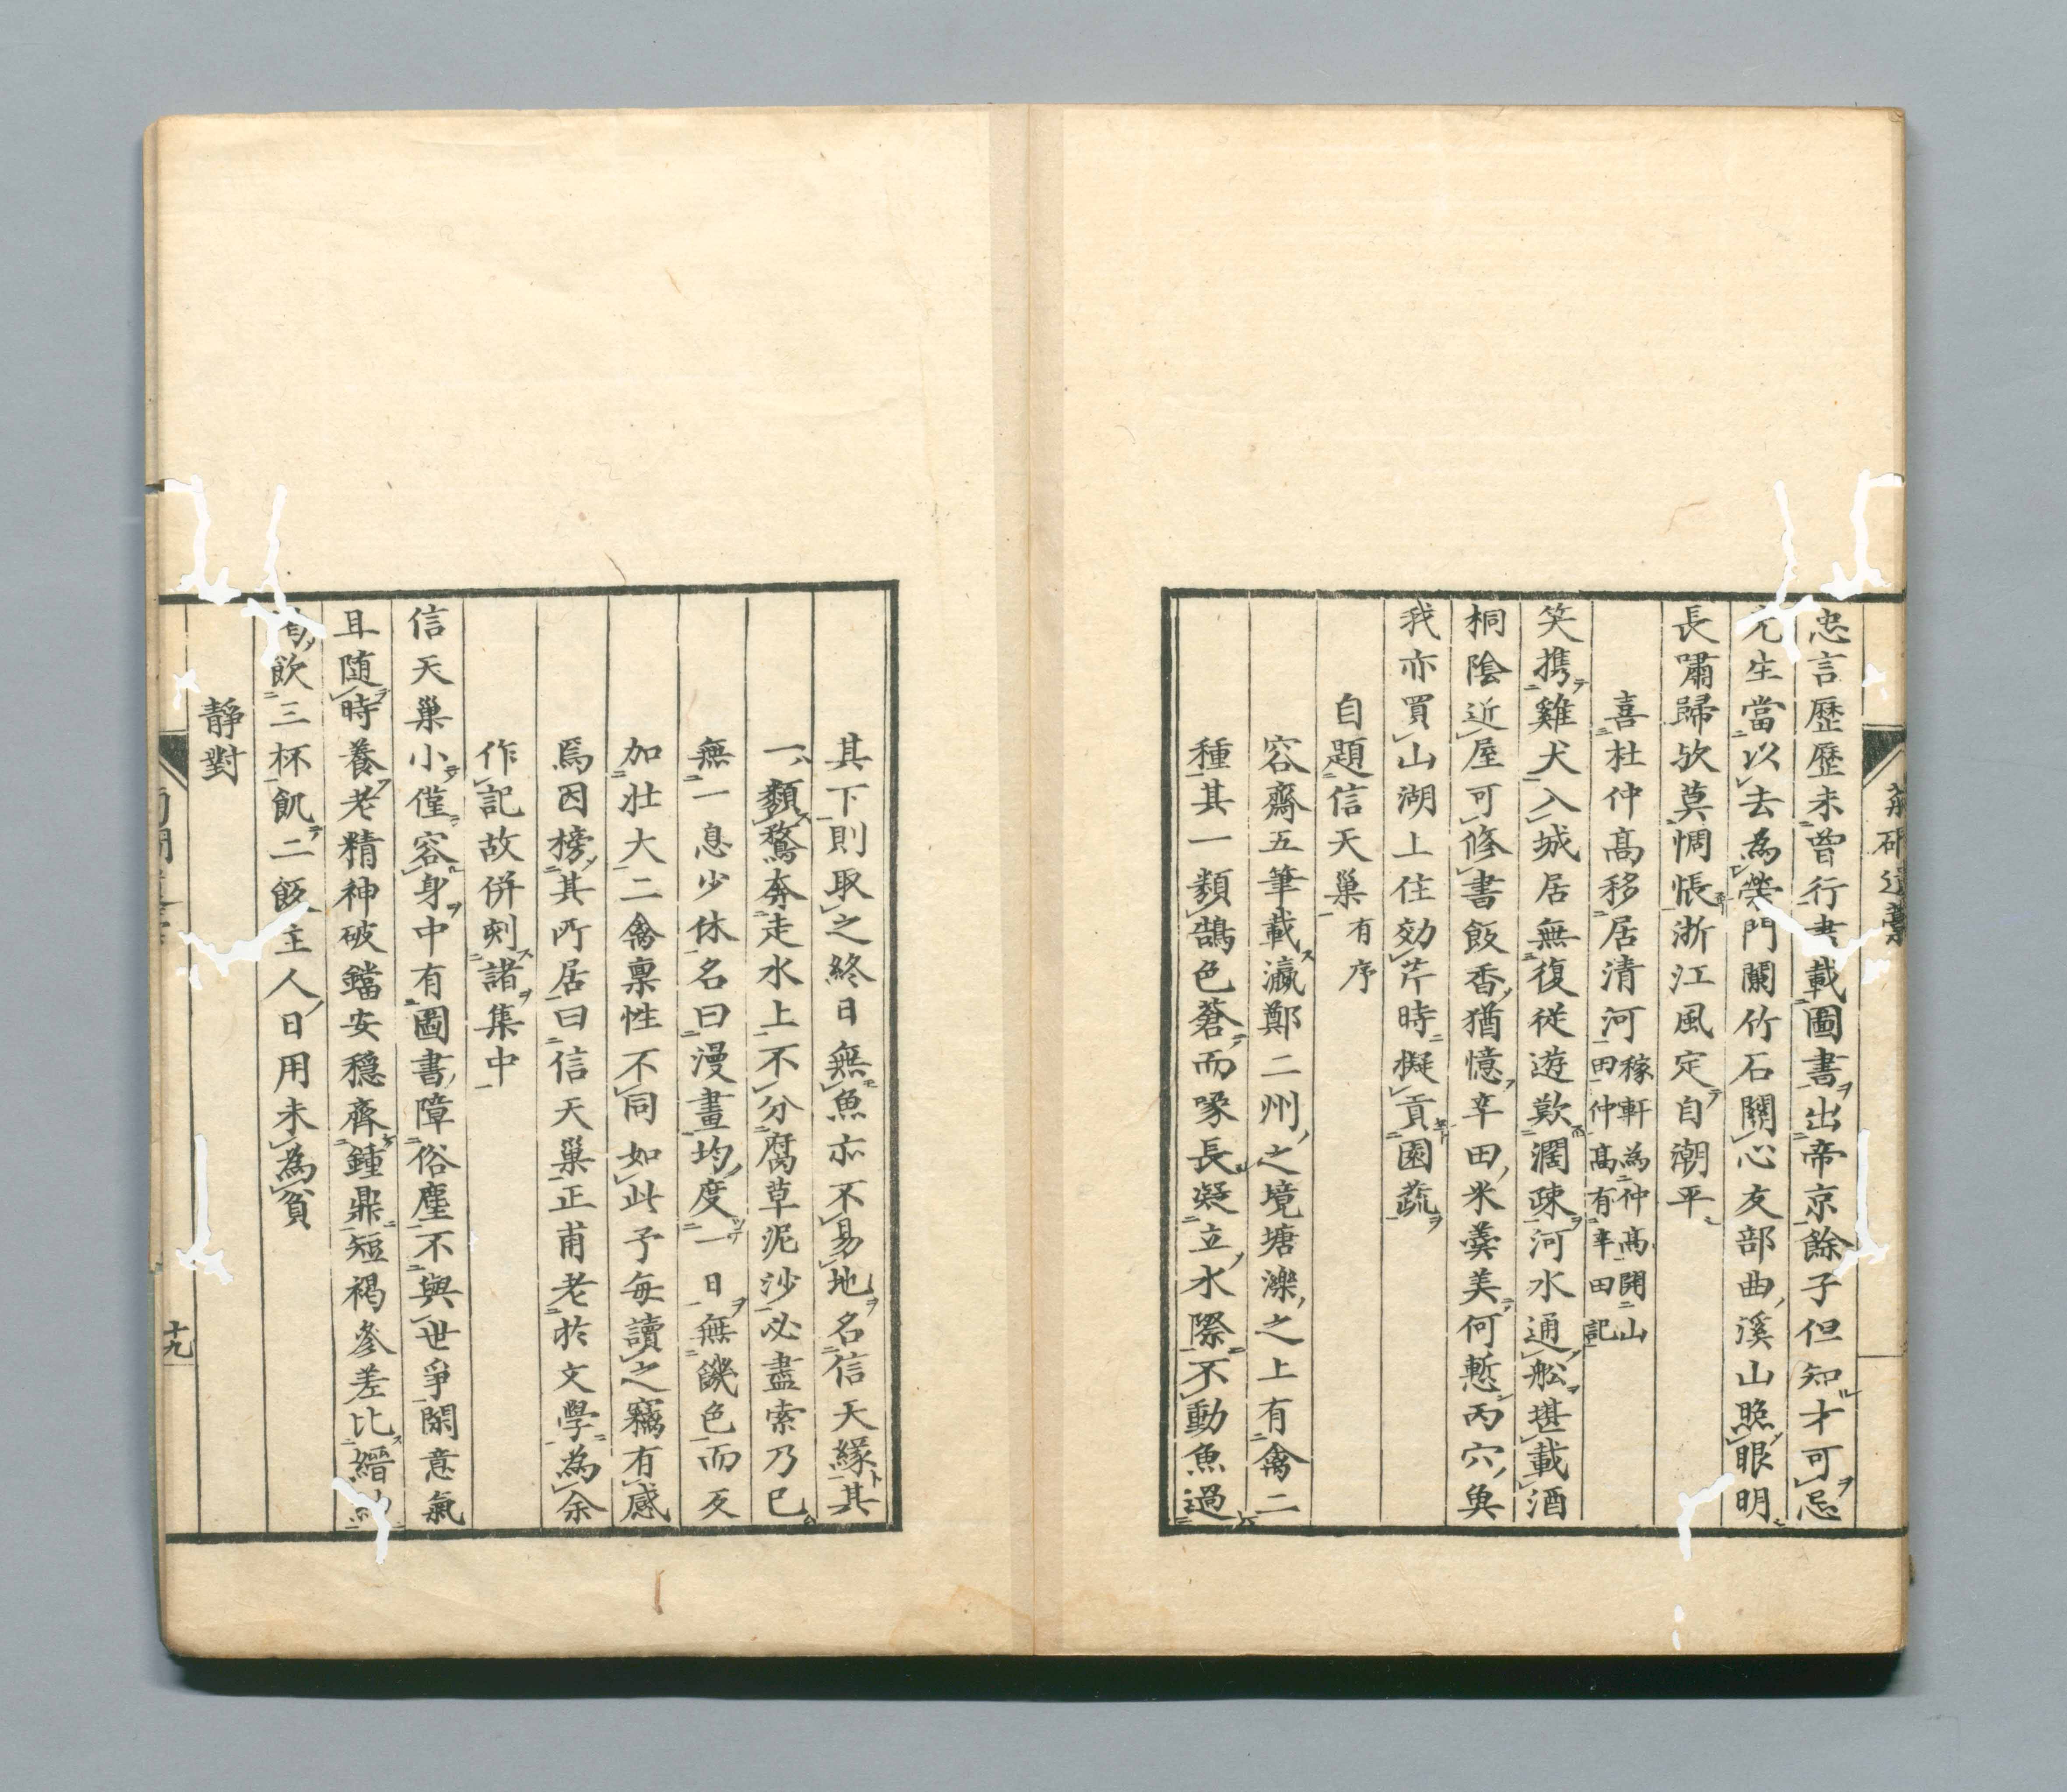 忠言歷歷未曾行書載圖書出帝京餘子但知才可忌
先生當以去為榮門闌竹石關心友部曲溪山照眼明
長嘯歸欤莫惆悵浙江風定自潮平
喜杜仲高移居清河稼軒為仲高開山
田仲高有辛田記
笑携雞犬入城居無復從遊歎濶疎河水通船堪載酒
桐陰近屋可修書飯香猶憶辛田米羹美何慙丙穴魚
我亦買山湖上住効芹時擬貢園蔬
自題信天巢有序
容齋五筆載瀛鄭二州之境塘濼之上有禽二
種其一類鵠色蒼而喙長凝立水際不動魚過
其下則取之終日無魚亦不易地名信天緣其
一類鶩奔走水上不分腐草泥沙必盡索乃已
無一息少休名曰漫畫均度一日無饑色而反
加壯大二禽禀性不同如此予每讀之竊有感
焉因榜其所居曰信天巢正甫老於文學為余
作記故併刻諸集中
信天巢小僅容身中有圖書障俗塵不與世爭閑意氣
且隨時養老精神破鐺安穩齊鍾鼎短褐參差比縉
飲三杯飢二飯主人日用未為貧
靜對
十九